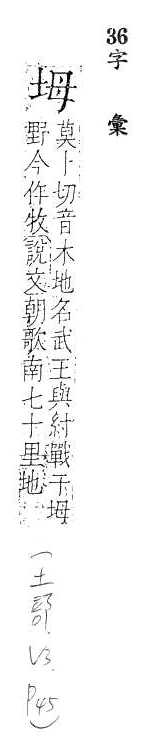 36字彙
坶
莫卜切音木地名武王與紂戰于坶
野今作牧說文朝歌南七十里地
(土部. V3. P45)